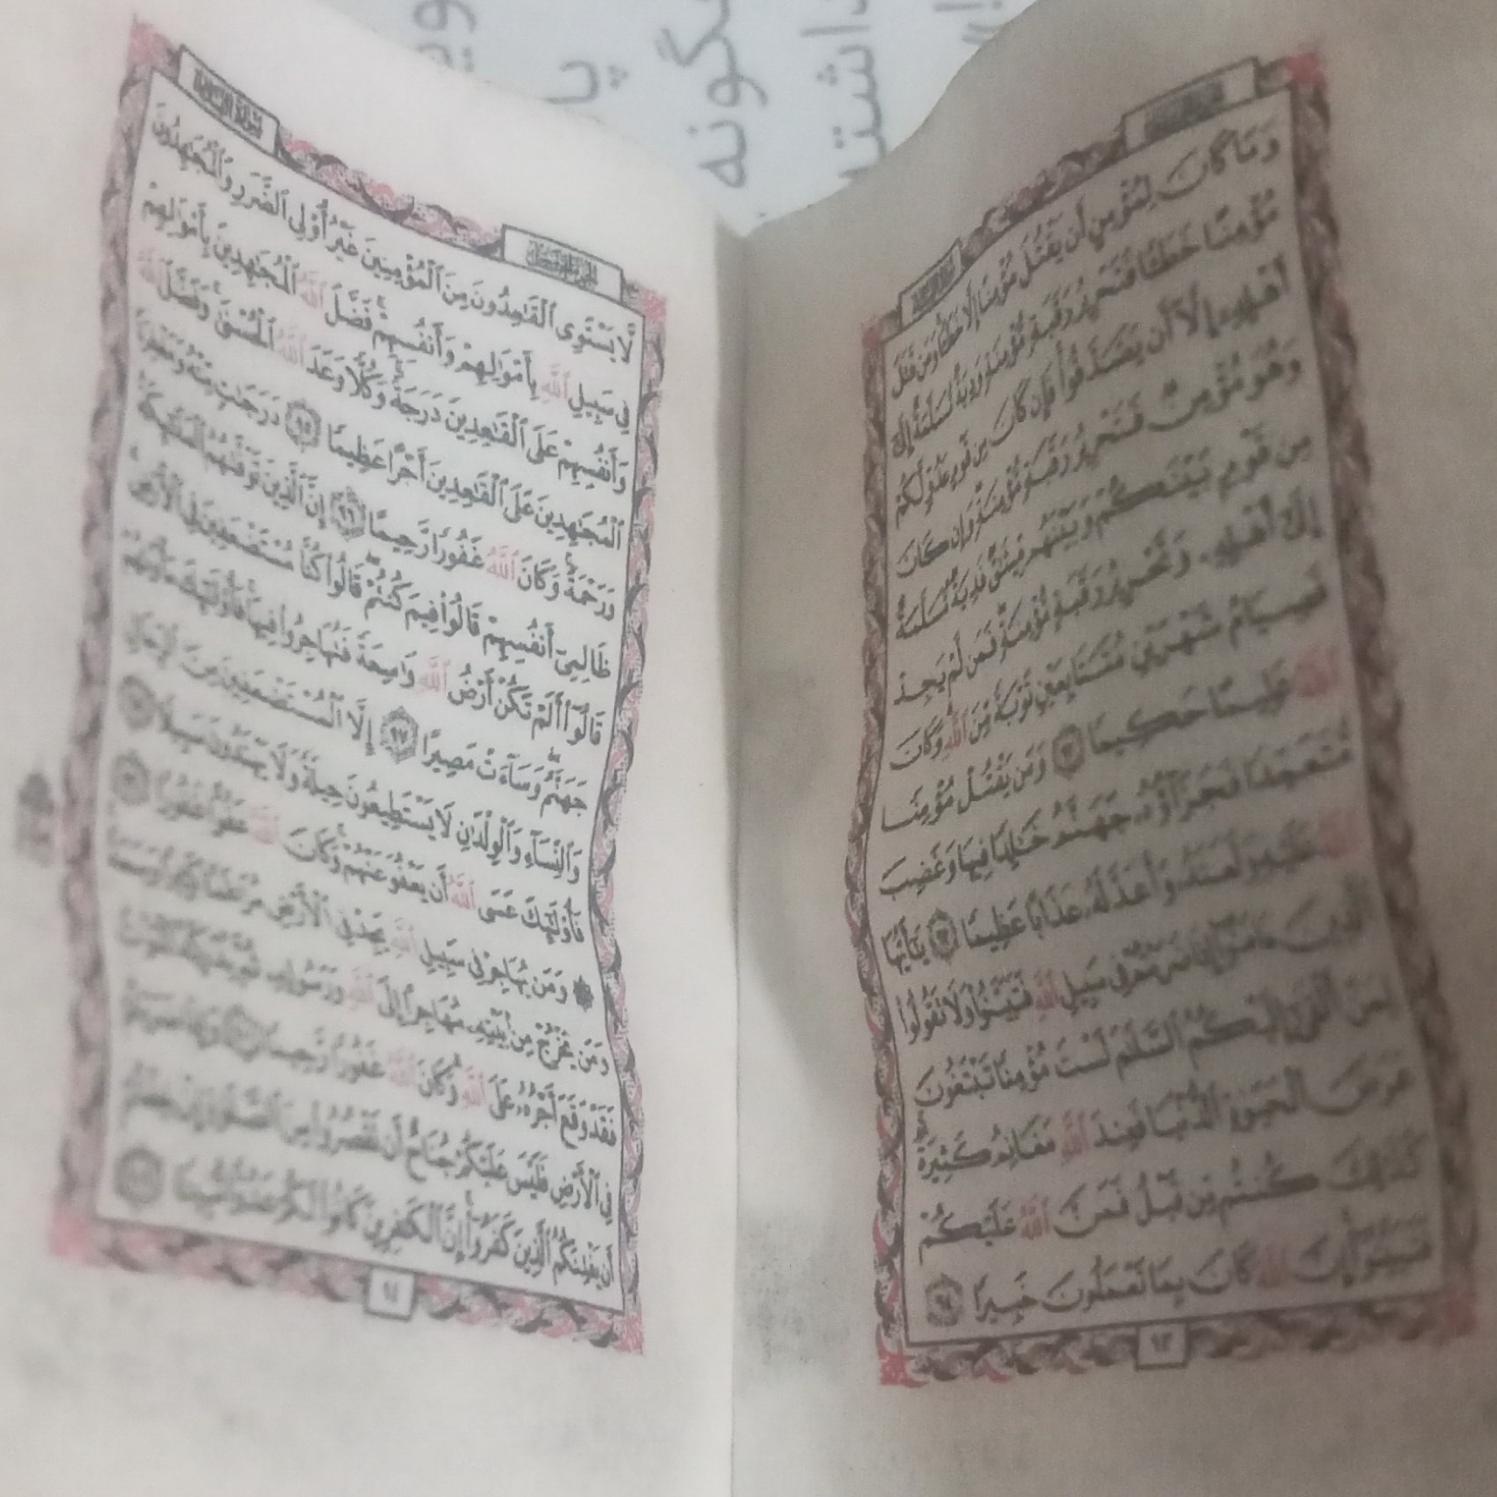 وَمَا كَانَ لِمُؤْمِنٍ أَن يَقْتُلَ مُؤْمِنًا إِلَّا خَطَـًٔا وَمَن قَتَلَ
مُؤْمِنًا خَطَـًٔا فَتَحْرِيرُ رَقَبَةٍ مُّؤْمِنَةٍ وَدِيَةٌ مُّسَلَّمَةٌ إِلَىٰٓ
أَهْلِهِۦٓ إِلَّآ أَن يَصَّدَّقُوا۟ فَإِن كَانَ مِن قَوْمٍ عَدُوٍّ لَّكُمْ
وَهُوَ مُؤْمِنٌ فَتَحْرِيرُ رَقَبَةٍ مُّؤْمِنَةٍ وَإِن كَانَ
مِن قَوْمٍۭ بَيْنَكُمْ وَبَيْنَهُم مِّيثَٰقٌ فَدِيَةٌ مُّسَلَّمَةٌ
إِلَىٰٓ أَهْلِهِۦ وَتَحْرِيرُ رَقَبَةٍ مُّؤْمِنَةٍ فَمَن لَّمْ يَجِدْ
فَصِيَامُ شَهْرَيْنِ مُتَتَابِعَيْنِ تَوْبَةً مِّنَ ٱللَّهِ وَكَانَ
ٱللَّهُ عَلِيمًا حَكِيمًا ٩٢ وَمَن يَقْتُلْ مُؤْمِنًا
مُّتَعَمِّدًا فَجَزَآؤُهُۥ جَهَنَّمُ خَٰلِدًا فِيهَا وَغَضِبَ
ٱللَّهُ عَلَيْهِ وَلَعَنَهُۥ وَأَعَدَّ لَهُۥ عَذَابًا عَظِيمًا ٩٣ يَٰٓأَيُّهَا
ٱلَّذِينَ ءَامَنُوٓا۟ إِذَا ضَرَبْتُمْ فِى سَبِيلِ ٱللَّهِ فَتَبَيَّنُوا۟ وَلَا تَقُولُوا۟
لِمَنْ أَلْقَىٰٓ إِلَيْكُمُ ٱلسَّلَٰمَ لَسْتَ مُؤْمِنًا تَبْتَغُونَ
عَرَضَ ٱلْحَيَوٰةِ ٱلدُّنْيَا فَعِندَ ٱللَّهِ مَغَانِمُ كَثِيرَةٌ
كَذَٰلِكَ كُنتُم مِّن قَبْلُ فَمَنَّ ٱللَّهُ عَلَيْكُمْ
فَتَبَيَّنُوٓا۟ إِنَّ ٱللَّهَ كَانَ بِمَا تَعْمَلُونَ خَبِيرًا ٩٤
٩٣
لَّا يَسْتَوِى ٱلْقَٰعِدُونَ مِنَ ٱلْمُؤْمِنِينَ غَيْرُ أُو۟لِى ٱلضَّرَرِ وَٱلْمُجَٰهِدُونَ
فِى سَبِيلِ ٱللَّهِ بِأَمْوَٰلِهِمْ وَأَنفُسِهِمْ فَضَّلَ ٱللَّهُ ٱلْمُجَٰهِدِينَ بِأَمْوَٰلِهِمْ
وَأَنفُسِهِمْ عَلَى ٱلْقَٰعِدِينَ دَرَجَةً وَكُلًّا وَعَدَ ٱللَّهُ ٱلْحُسْنَىٰ وَفَضَّلَ ٱللَّهُ
ٱلْمُجَٰهِدِينَ عَلَى ٱلْقَٰعِدِينَ أَجْرًا عَظِيمًا ٩٥ دَرَجَٰتٍ مِّنْهُ وَمَغْفِرَةً
وَرَحْمَةً وَكَانَ ٱللَّهُ غَفُورًا رَّحِيمًا ٩٦ إِنَّ ٱلَّذِينَ تَوَفَّىٰهُمُ ٱلْمَلَٰٓئِكَةُ
ظَالِمِىٓ أَنفُسِهِمْ قَالُوا۟ فِيمَ كُنتُمْ قَالُوا۟ كُنَّا مُسْتَضْعَفِينَ فِى ٱلْأَرْضِ
قَالُوٓا۟ أَلَمْ تَكُنْ أَرْضُ ٱللَّهِ وَٰسِعَةً فَتُهَاجِرُوا۟ فِيهَا فَأُو۟لَٰٓئِكَ مَأْوَىٰهُمْ
جَهَنَّمُ وَسَآءَتْ مَصِيرًا ٩٧ إِلَّا ٱلْمُسْتَضْعَفِينَ مِنَ ٱلرِّجَالِ
وَٱلنِّسَآءِ وَٱلْوِلْدَٰنِ لَا يَسْتَطِيعُونَ حِيلَةً وَلَا يَهْتَدُونَ سَبِيلًا ٩٨
فَأُو۟لَٰٓئِكَ عَسَى ٱللَّهُ أَن يَعْفُوَ عَنْهُمْ وَكَانَ ٱللَّهُ عَفُوًّا غَفُورًا ٩٩
وَمَن يُهَاجِرْ فِى سَبِيلِ ٱللَّهِ يَجِدْ فِى ٱلْأَرْضِ مُرَٰغَمًا كَثِيرًا وَسَعَةً
وَمَن يَخْرُجْ مِنۢ بَيْتِهِۦ مُهَاجِرًا إِلَى ٱللَّهِ وَرَسُولِهِۦ ثُمَّ يُدْرِكْهُ ٱلْمَوْتُ
فَقَدْ وَقَعَ أَجْرُهُۥ عَلَى ٱللَّهِ وَكَانَ ٱللَّهُ غَفُورًا رَّحِيمًا ١٠٠ وَإِذَا ضَرَبْتُمْ
فِى ٱلْأَرْضِ فَلَيْسَ عَلَيْكُمْ جُنَاحٌ أَن تَقْصُرُوا۟ مِنَ ٱلصَّلَوٰةِ إِنْ خِفْتُمْ
أَن يَفْتِنَكُمُ ٱلَّذِينَ كَفَرُوٓا۟ إِنَّ ٱلْكَٰفِرِينَ كَانُوا۟ لَكُمْ عَدُوًّا مُّبِينًا ١٠١
٩٤